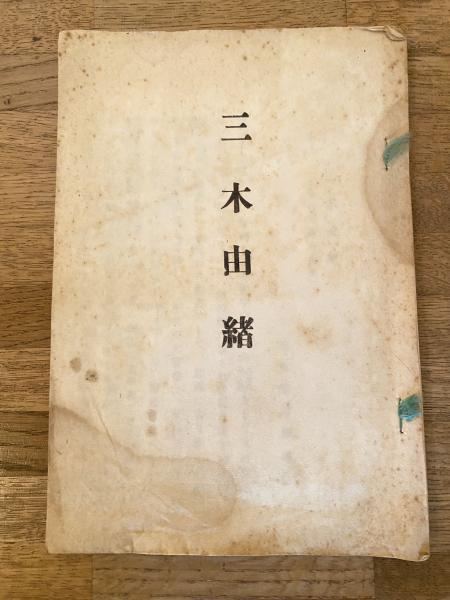 三木由緒